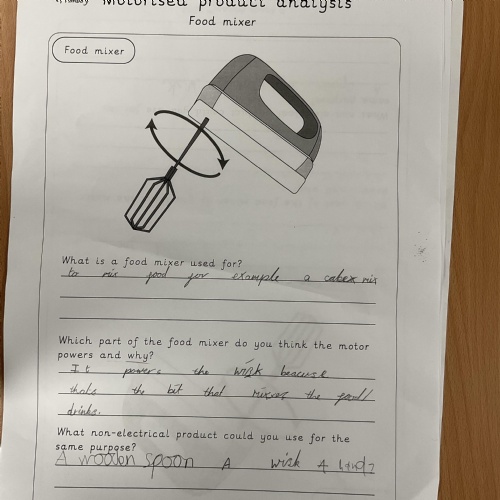 Motorised product analysis
Food mixer
Food mixer
What is a food mixer used for?
to mix food for example a cakex mix
Which part of the food mixer do you think the motor
powers and why?
It powers the wisk beacuse
thats the bit that mixes the food/
drinks.
What non-electrical product could you use for the
same purpose?
A woodon spoon A wisk A